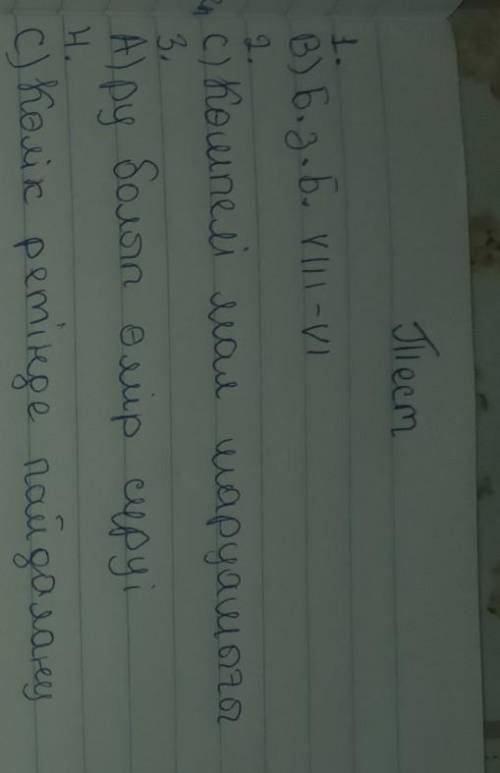 Тест
1.
В) Б.з.б. VIII-VI
2.
С) Көшпелі мал шаруашылығы
3.
А) ру болып өмір сүруі
4.
С) Көлік ретінде пайдалану